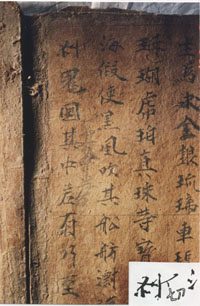 為求金銀琉璃車
珊瑚虎珀真珠等寶
海假使黑風吹其船舫
刹鬼國其中若有乃至